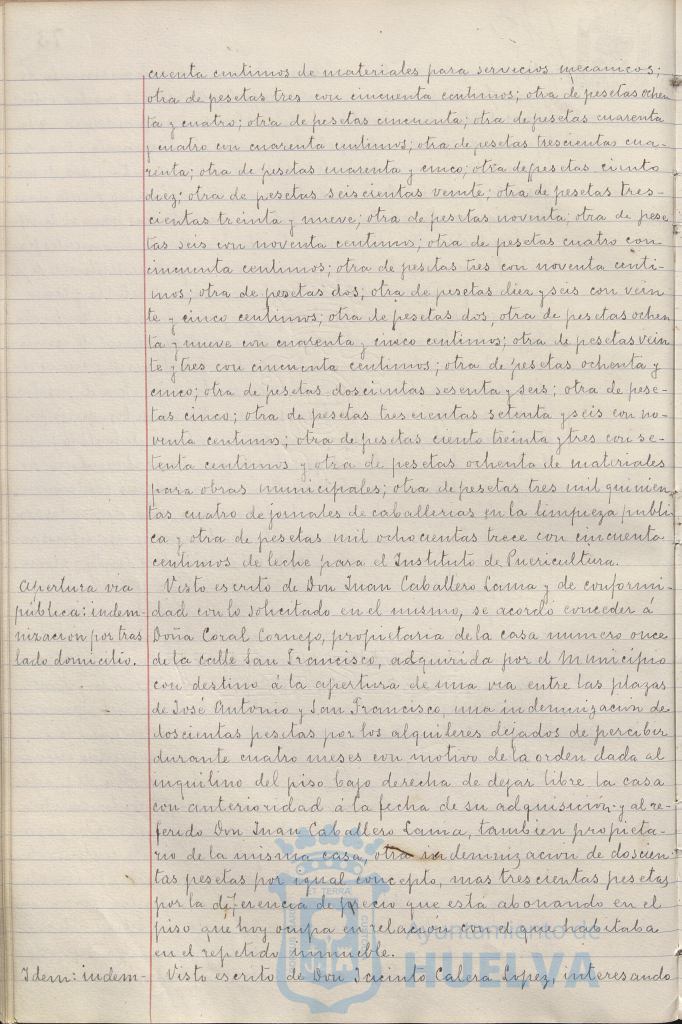 cuenta centimos de materiales para servicios mecanicos;
otra de pesetas tres con cincuenta centimos; otra de pesetas ochen
ta y cuatro; otra de pesetas cincuenta; otra de pesetas cuarenta
y cuatro con cuarenta centimos; otra de pesetas trescientas cua-
renta; otra de pesetas cuarenta y cinco; otra de pesetas ciento
diez; otra de pesetas seiscientas veinte; otra de pesetas tres-
cientas treinta y nueve; otra de pesetas noventa; otra de pese
tas seis con noventa centimos; otra de pesetas cuatro con
cincuenta centimos; otra de pesetas tres con noventa centi-
mos; otra de pesetas dos; otra de pesetas diez y seis con vein
te y cinco centimos; otra de pesetas dos, otra de pesetas ochen
ta y nueve con cuarenta y cinco centimos; otra de pesetas vein
te y tres con cincuenta centimos; otra de pesetas ochenta y
cinco; otra de pesetas doscientas sesenta y seis; otra de pese-
tas cinco; otra de pesetas trescientas setenta y seis con no-
venta centimos; otra de pesetas ciento treinta y tres con se-
tenta centimos y otra de pesetas ochenta de materiales
para obras municipales; otra de pesetas tres mil quinien
tas cuatro de jornales de caballerias en la limpieza publi
ca y otra de pesetas mil ochocientas trece con cincuenta
centimos de leche para el Instituto de Puericultura.
apertura via
pública: indem-
nizacion por tras
lado domicilio.
Visto escrito de Don Juan Caballero Lama y de conformi-
dad con lo solicitado en el mismo, se acordó conceder á
Doña Coral Cornejo, propietaria de la casa numero once
de la calle San Francisco, adquirida por el Municipio
con destino á la apertura de una via entre las plazas
de José Antonio y San Francisco, una indemnizacion de
doscientas pesetas por los alquileres dejados de percibir
durante cuatro meses con motivo de la orden dada al
inquilino del piso bajo derecha de dejar libre la casa
con anterioridad á la fecha de su adquisición y al re-
ferido Don Juan Caballero Lama, tambien propieta-
rio de la misma casa, otra indemnizacion de doscien
tas pesetas por igual concepto, mas trescientas pesetas
por la diferencia de precio que está abonando en el
piso que hoy ocupa en relación con el que habitaba
en el repetido inmueble.
Idem: indem-
Visto escrito de Don Jacinto Calera Lopez, interesando
Ayuntamiento de
HUELVA